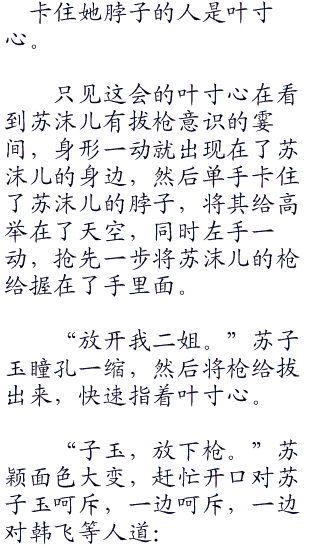 卡住她脖子的人是叶寸
心。
只见这会的叶寸心在看
到苏沫儿有拔枪意识的霎
间，身形一动就出现在了苏
沫儿的身边，然后单手卡住
了苏沫儿的脖子，将其给高
举在了天空，同时左手一
动，抢先一步将苏沫儿的枪
给握在了手里面。
“放开我二姐。”苏子
玉瞳孔一缩，然后将枪给拔
出来，快速指着叶寸心。
“子玉，放下枪。”苏
颖面色大变，赶忙开口对苏
子玉呵斥，一边呵斥，一边
对韩飞等人道：